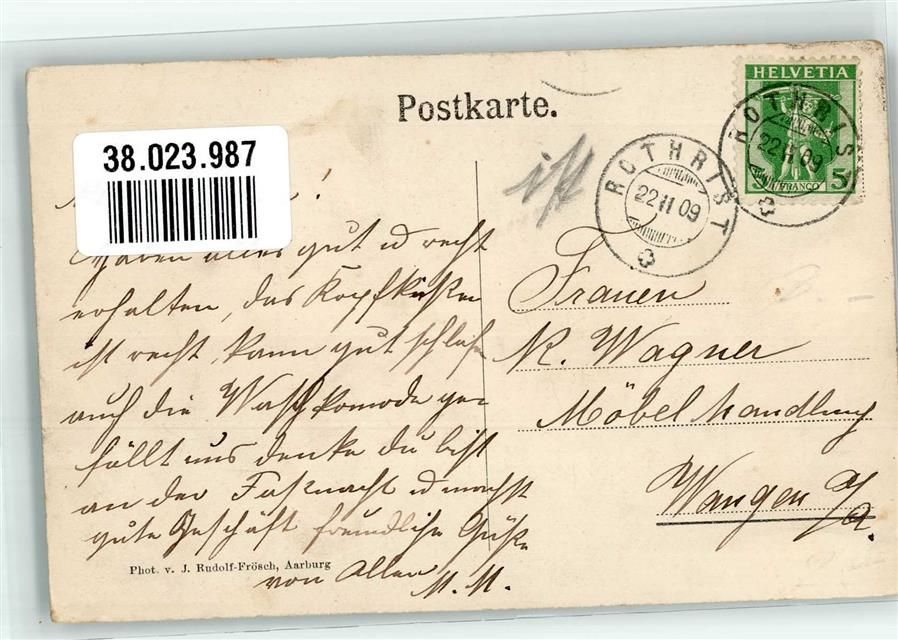 Postkarte.
38.023.987
HELVETIA
5 5
FRANCO
ROTHRIST
22 II 09
ROTHRIST
22 II 09
!
Haben alles gut u recht
erhalten, das Kopfkissen
ist recht, kann gut schlafen
auch die Waschkomode ge-
fällt uns denke du bist
an der Fasnacht u machst
gute Geschäft freundliche Grüsse
von Allen
M. M.
Frauen
K. Wagner
Möbelhandlung
Wangen a/A.
Phot. v. J. Rudolf-Frösch, Aarburg